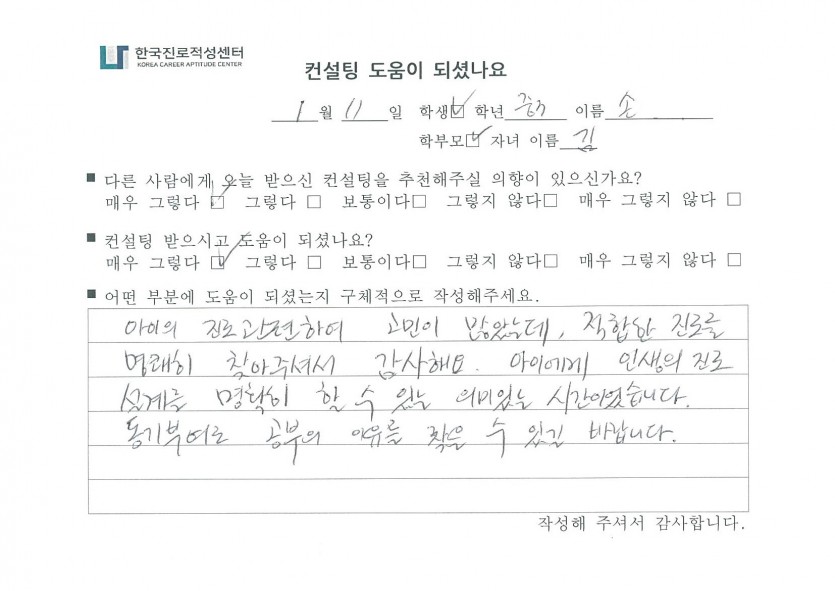 한국진로적성센터
KOREA CAREER APTITUDE CENTER
컨설팅 도움이 되셨나요
1월 11일 학생☑ 학년 중3 이름 손
학부모☑ 자녀 이름 김
■ 다른 사람에게 오늘 받으신 컨설팅을 추천해주실 의향이 있으신가요?
매우 그렇다 ☑ 그렇다 □ 보통이다□ 그렇지 않다□ 매우 그렇지 않다 □
■ 컨설팅 받으시고 도움이 되셨나요?
매우 그렇다 ☑ 그렇다 □ 보통이다□ 그렇지 않다□ 매우 그렇지 않다 □
■ 어떤 부분에 도움이 되셨는지 구체적으로 작성해주세요.
아이의 진로관련하여 고민이 많았는데, 적합한 진로를
명쾌히 찾아주셔서 감사해요. 아이에게 인생의 진로
설계를 명확히 할 수 있는 의미있는 시간이였습니다.
동기부여로 공부의 이유를 찾을 수 있길 바랍니다.
작성해 주셔서 감사합니다.